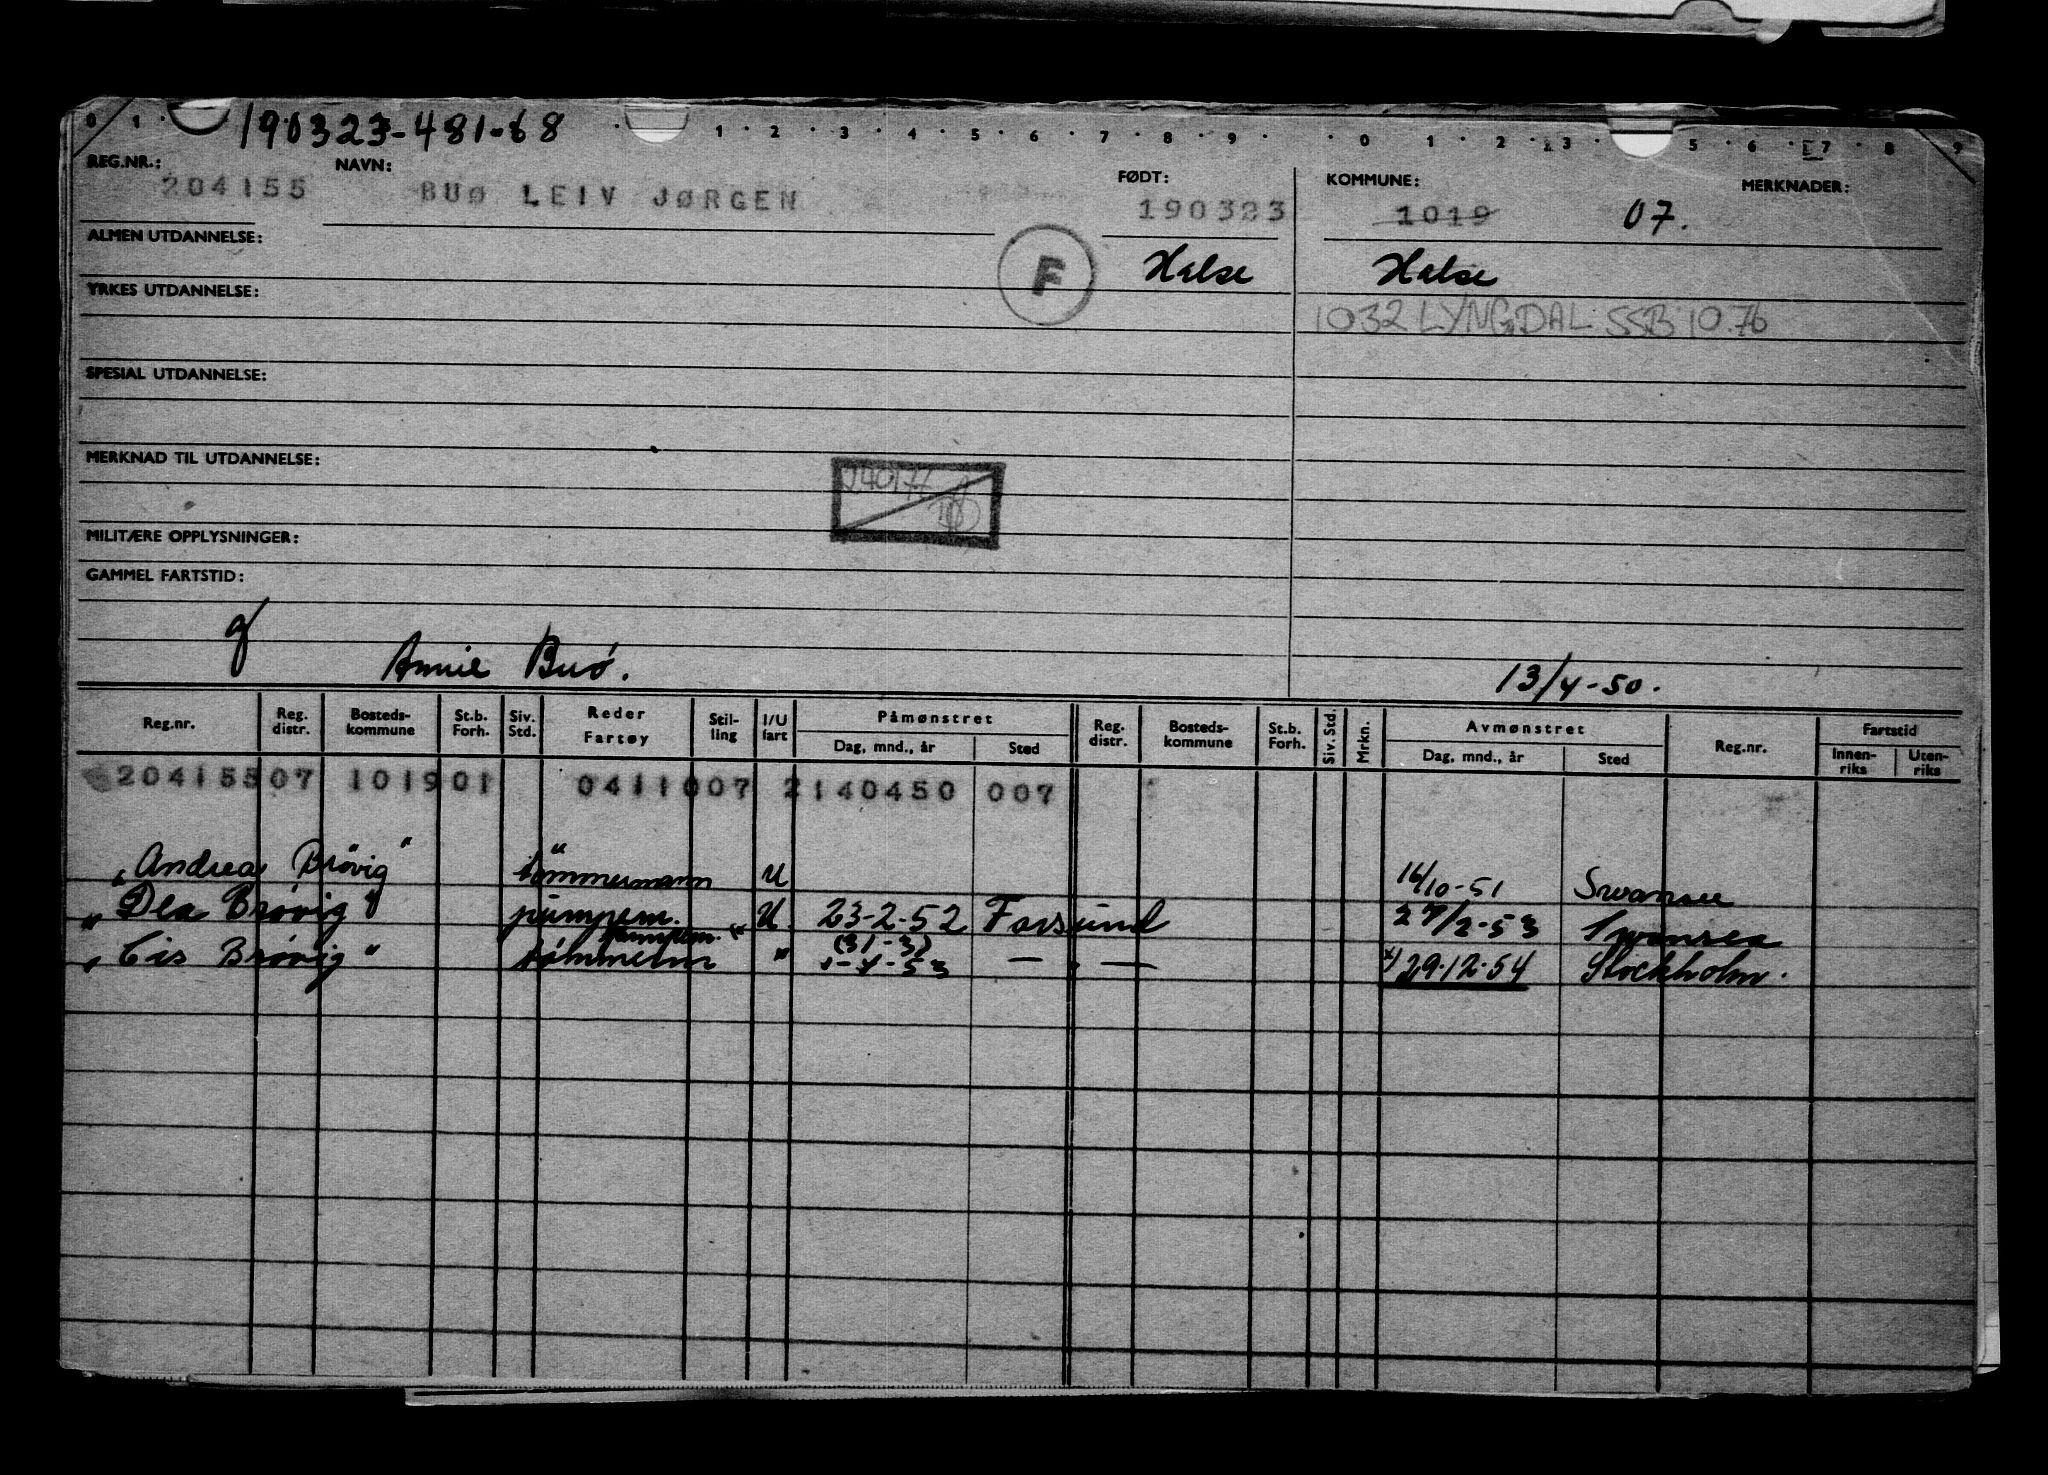 190323-481-68
0 1 1 2 3 4 5 6 7 8 9 0 1 2 3 5 6 7 8 9
REG.NR.: NAVN: FØDT: KOMMUNE: MERKNADER:
204155 BUØ LEIV JØRGEN 190323 1019 07.
ALMEN UTDANNELSE: F Halse Halse
YRKES UTDANNELSE: 1032 LYNGDAL SSB 10.76
SPESIAL UTDANNELSE:
MERKNAD TIL UTDANNELSE:
240177
MILITÆRE OPPLYSNINGER:
GAMMEL FARTSTID:
Annie Buø. 13/4-50.
Reg.nr. Reg. distr. Bosteds-kommune St.b. Forh. Siv. Std. Reder Fartøy Stil-ling I/U fart Påmønstret Dag, mnd., år Sted Reg. distr. Bosteds-kommune St.b. Forh. Siv. Std. Mrkn. Avmønstret Dag, mnd., år Sted Reg.nr. Fartstid Innen-riks Uten-riks
204155 07 1019 01 0411007 2 140450 007
"Andrea Brøvig" tømmermann U 16/10-51 Swansea
"Dea Brøvig" pumpem. U. 23-2-52 Farsund 27/2-53 Swansea
pumpem. x (31-3)
"Cis Brøvig" tømmerm " 1-4-53 — " — x) 29.12.54 Stockholm.